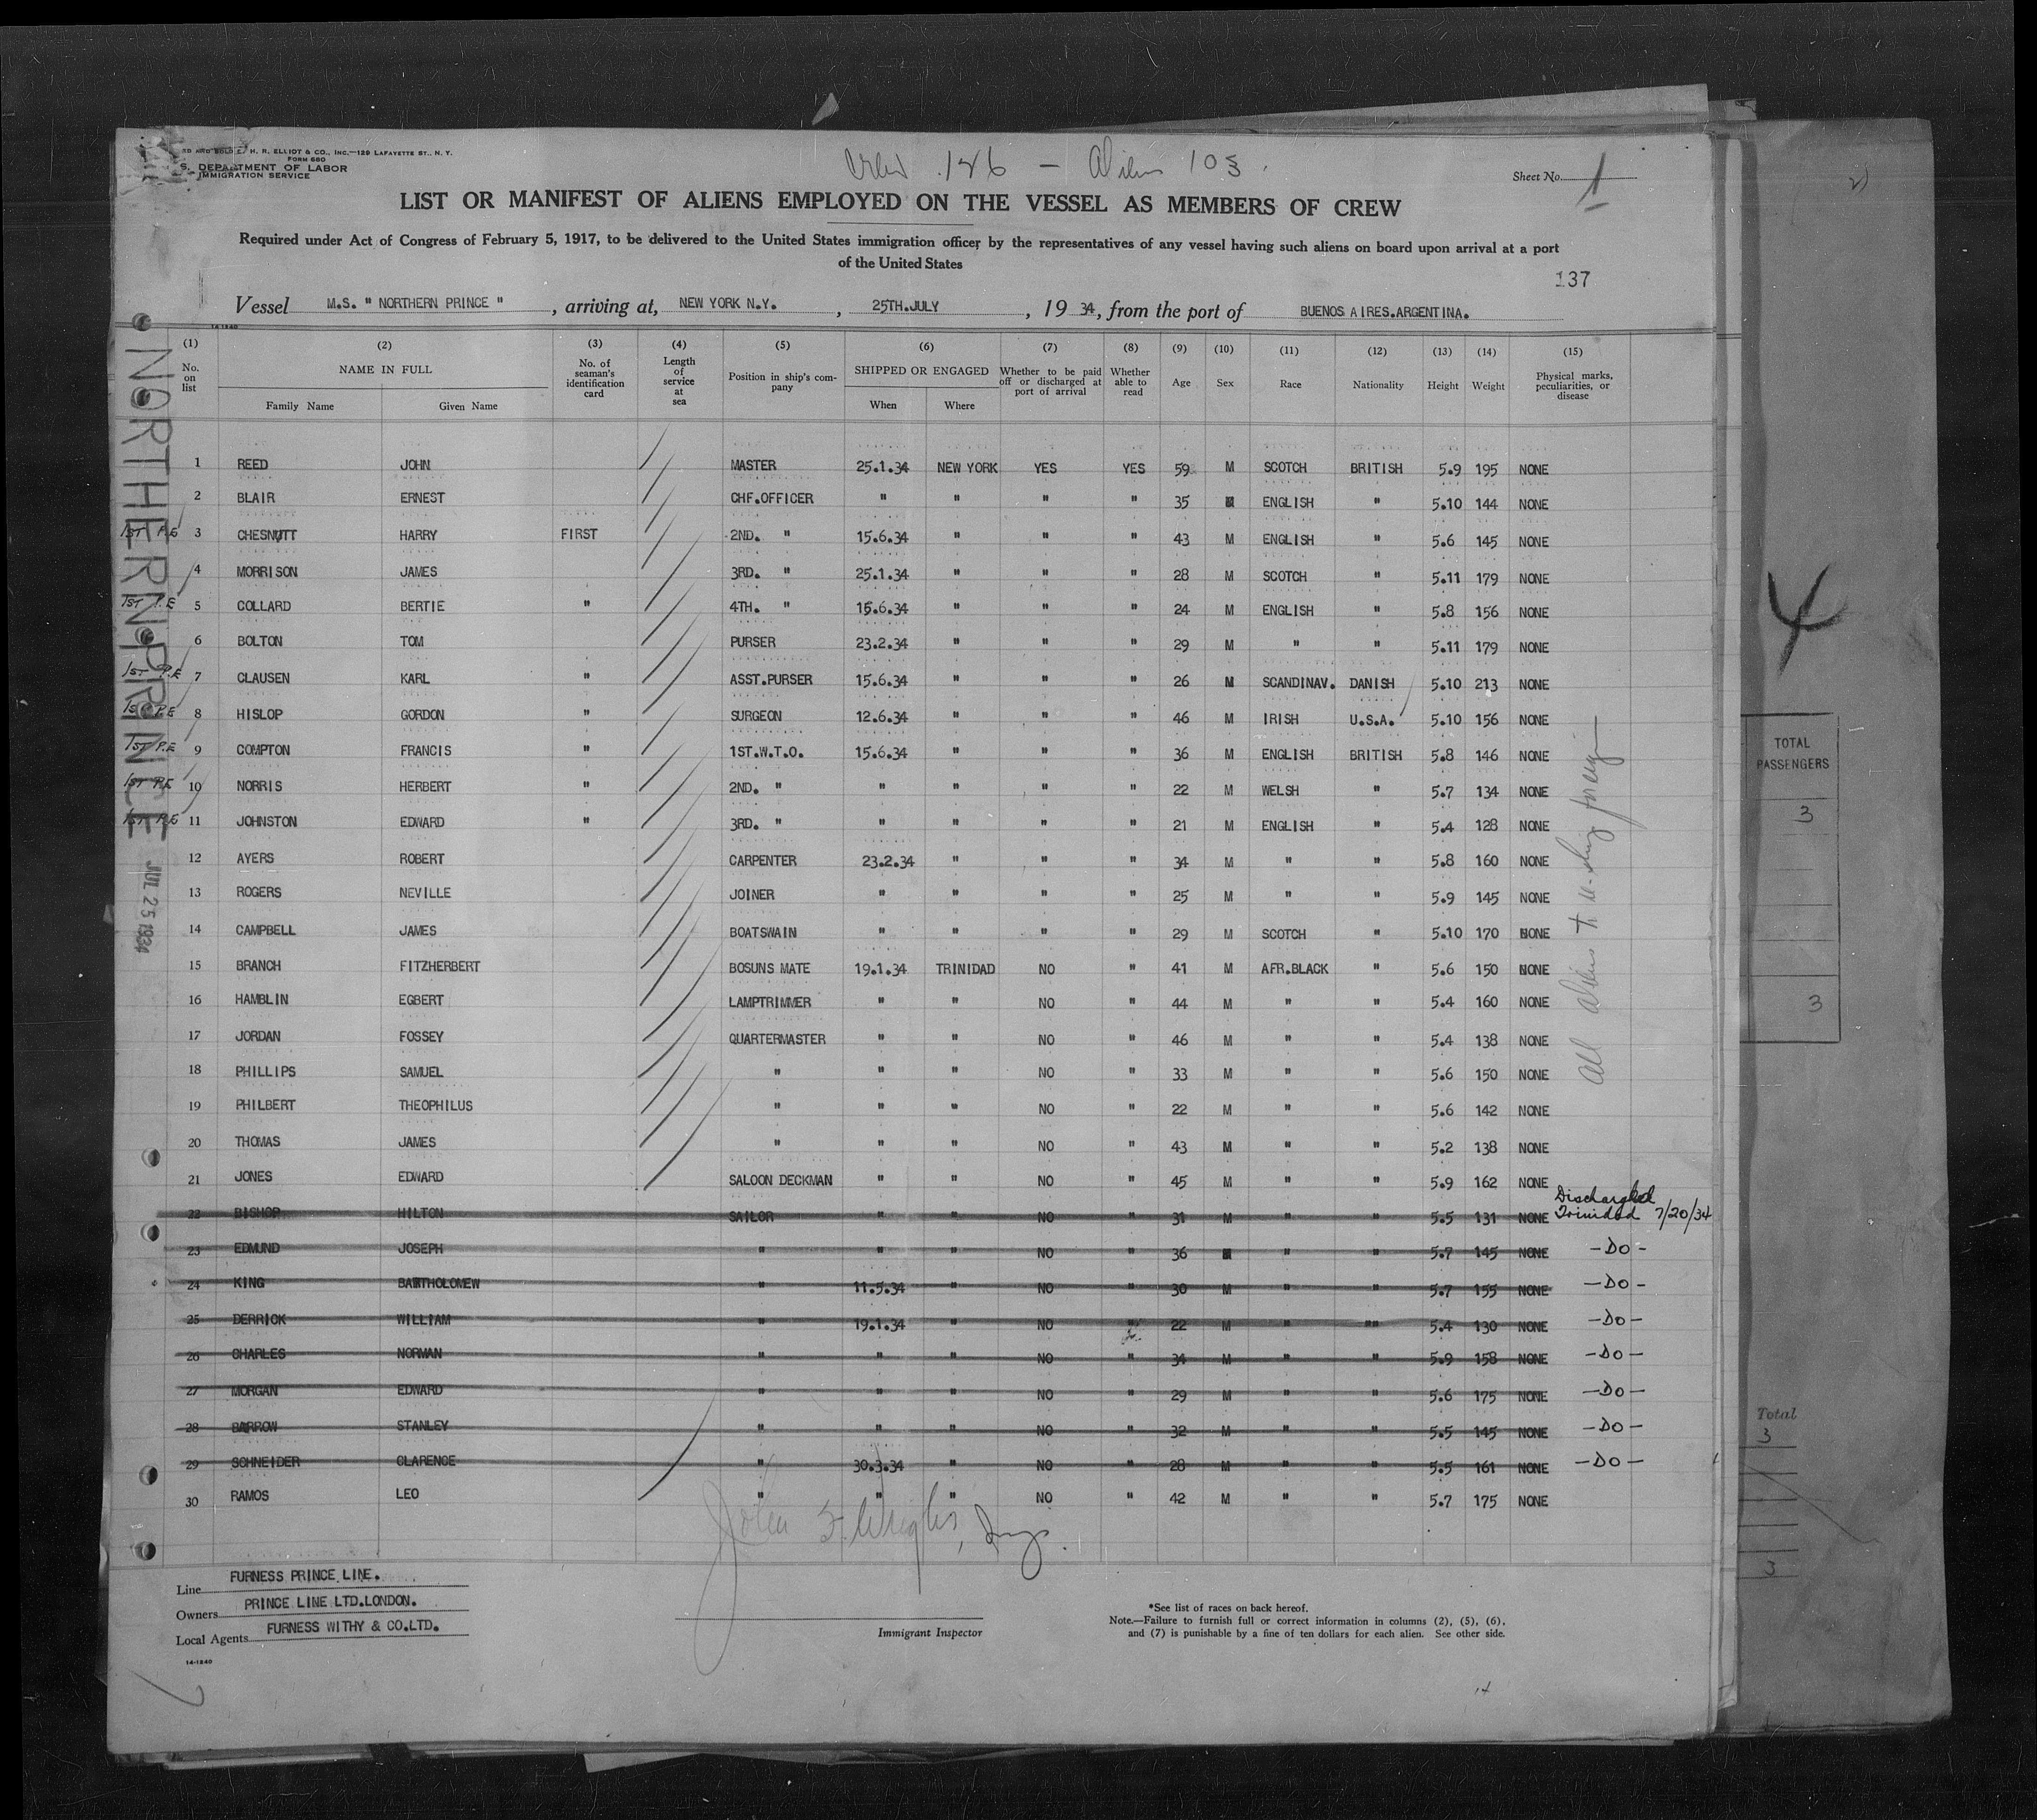 H. R. ELLIOT & CO., INC.—129 LAFAYETTE ST., N. Y.
FORM 680
S. DEPARTMENT OF LABOR
IMMIGRATION SERVICE
Crew 146 — Aliens 103.
Sheet No. 1
LIST OR MANIFEST OF ALIENS EMPLOYED ON THE VESSEL AS MEMBERS OF CREW
Required under Act of Congress of February 5, 1917, to be delivered to the United States immigration officer by the representatives of any vessel having such aliens on board upon arrival at a port
of the United States
137
Vessel M.S. " NORTHERN PRINCE ", arriving at, NEW YORK N.Y., 25TH.JULY, 19 34, from the port of BUENOS AIRES.ARGENTINA.
14-1240
(1) No. on list (2) NAME IN FULL Family Name Given Name (3) No. of seaman's identification card (4) Length of service at sea (5) Position in ship's company (6) SHIPPED OR ENGAGED When Where (7) Whether to be paid off or discharged at port of arrival (8) Whether able to read (9) Age (10) Sex (11) Race (12) Nationality (13) Height (14) Weight (15) Physical marks, peculiarities, or disease
1 REED JOHN MASTER 25.1.34 NEW YORK YES YES 59 M SCOTCH BRITISH 5.9 195 NONE
2 BLAIR ERNEST CHF.OFFICER " " " " 35 M ENGLISH " 5.10 144 NONE
1ST P.E 3 CHESNUTT HARRY FIRST 2ND. " 15.6.34 " " " 43 M ENGLISH " 5.6 145 NONE
4 MORRISON JAMES 3RD. " 25.1.34 " " " 28 M SCOTCH " 5.11 179 NONE
1ST P.E 5 COLLARD BERTIE " 4TH. " 15.6.34 " " " 24 M ENGLISH " 5.8 156 NONE
6 BOLTON TOM PURSER 23.2.34 " " " 29 M " " 5.11 179 NONE
1ST P.E 7 CLAUSEN KARL " ASST.PURSER 15.6.34 " " " 26 M SCANDINAV. DANISH 5.10 213 NONE
1ST P.E 8 HISLOP GORDON " SURGEON 12.6.34 " " " 46 M IRISH U.S.A. 5.10 156 NONE
1ST P.E 9 COMPTON FRANCIS " 1ST.W.T.O. 15.6.34 " " " 36 M ENGLISH BRITISH 5.8 146 NONE
1ST P.E 10 NORRIS HERBERT " 2ND. " " " " " 22 M WELSH " 5.7 134 NONE
1ST P.E 11 JOHNSTON EDWARD " 3RD. " " " " " 21 M ENGLISH " 5.4 128 NONE
12 AYERS ROBERT CARPENTER 23.2.34 " " " 34 M " " 5.8 160 NONE
13 ROGERS NEVILLE JOINER " " " " 25 M " " 5.9 145 NONE
14 CAMPBELL JAMES BOATSWAIN " " " " 29 M SCOTCH " 5.10 170 NONE
15 BRANCH FITZHERBERT BOSUNS MATE 19.1.34 TRINIDAD NO " 41 M AFR.BLACK " 5.6 150 NONE
16 HAMBLIN EGBERT LAMPTRIMMER " " NO " 44 M " " 5.4 160 NONE
17 JORDAN FOSSEY QUARTERMASTER " " NO " 46 M " " 5.4 138 NONE
18 PHILLIPS SAMUEL " " " NO " 33 M " " 5.6 150 NONE
19 PHILBERT THEOPHILUS " " " NO " 22 M " " 5.6 142 NONE
20 THOMAS JAMES " " " NO " 43 M " " 5.2 138 NONE
21 JONES EDWARD SALOON DECKMAN " " NO " 45 M " " 5.9 162 NONE
22 BISHOP HILTON SAILOR " " NO " 31 M " " 5.5 131 NONE Discharged Trinidad 7/20/34
23 EDMUND JOSEPH " " " NO " 36 M " " 5.7 145 NONE —DO—
24 KING BARTHOLOMEW " 11.5.34 " NO " 30 M " " 5.7 155 NONE —DO—
25 DERRICK WILLIAM " 19.1.34 " NO " 22 M " "" 5.4 130 NONE —DO—
26 CHARLES NORMAN " " " NO " 34 M " " 5.9 158 NONE —DO—
27 MORGAN EDWARD " " " NO " 29 M " " 5.6 175 NONE —DO—
28 BARROW STANLEY " " " NO " 32 M " " 5.5 145 NONE —DO—
29 SCHNEIDER CLARENCE " 30.3.34 " NO " 28 M " " 5.5 161 NONE —DO—
30 RAMOS LEO " " " NO " 42 M " " 5.7 175 NONE
All Aliens to re-ship foreign
NORTHERN PRINCE
JUL 25 1934
John F. Wright, Insp.
Line FURNESS PRINCE LINE.
Owners PRINCE LINE LTD.LONDON.
Local Agents FURNESS WITHY & CO.LTD.
14-1240
Immigrant Inspector
*See list of races on back hereof.
Note.—Failure to furnish full or correct information in columns (2), (5), (6),
and (7) is punishable by a fine of ten dollars for each alien. See other side.
TOTAL
PASSENGERS
3
3
Total
3
3